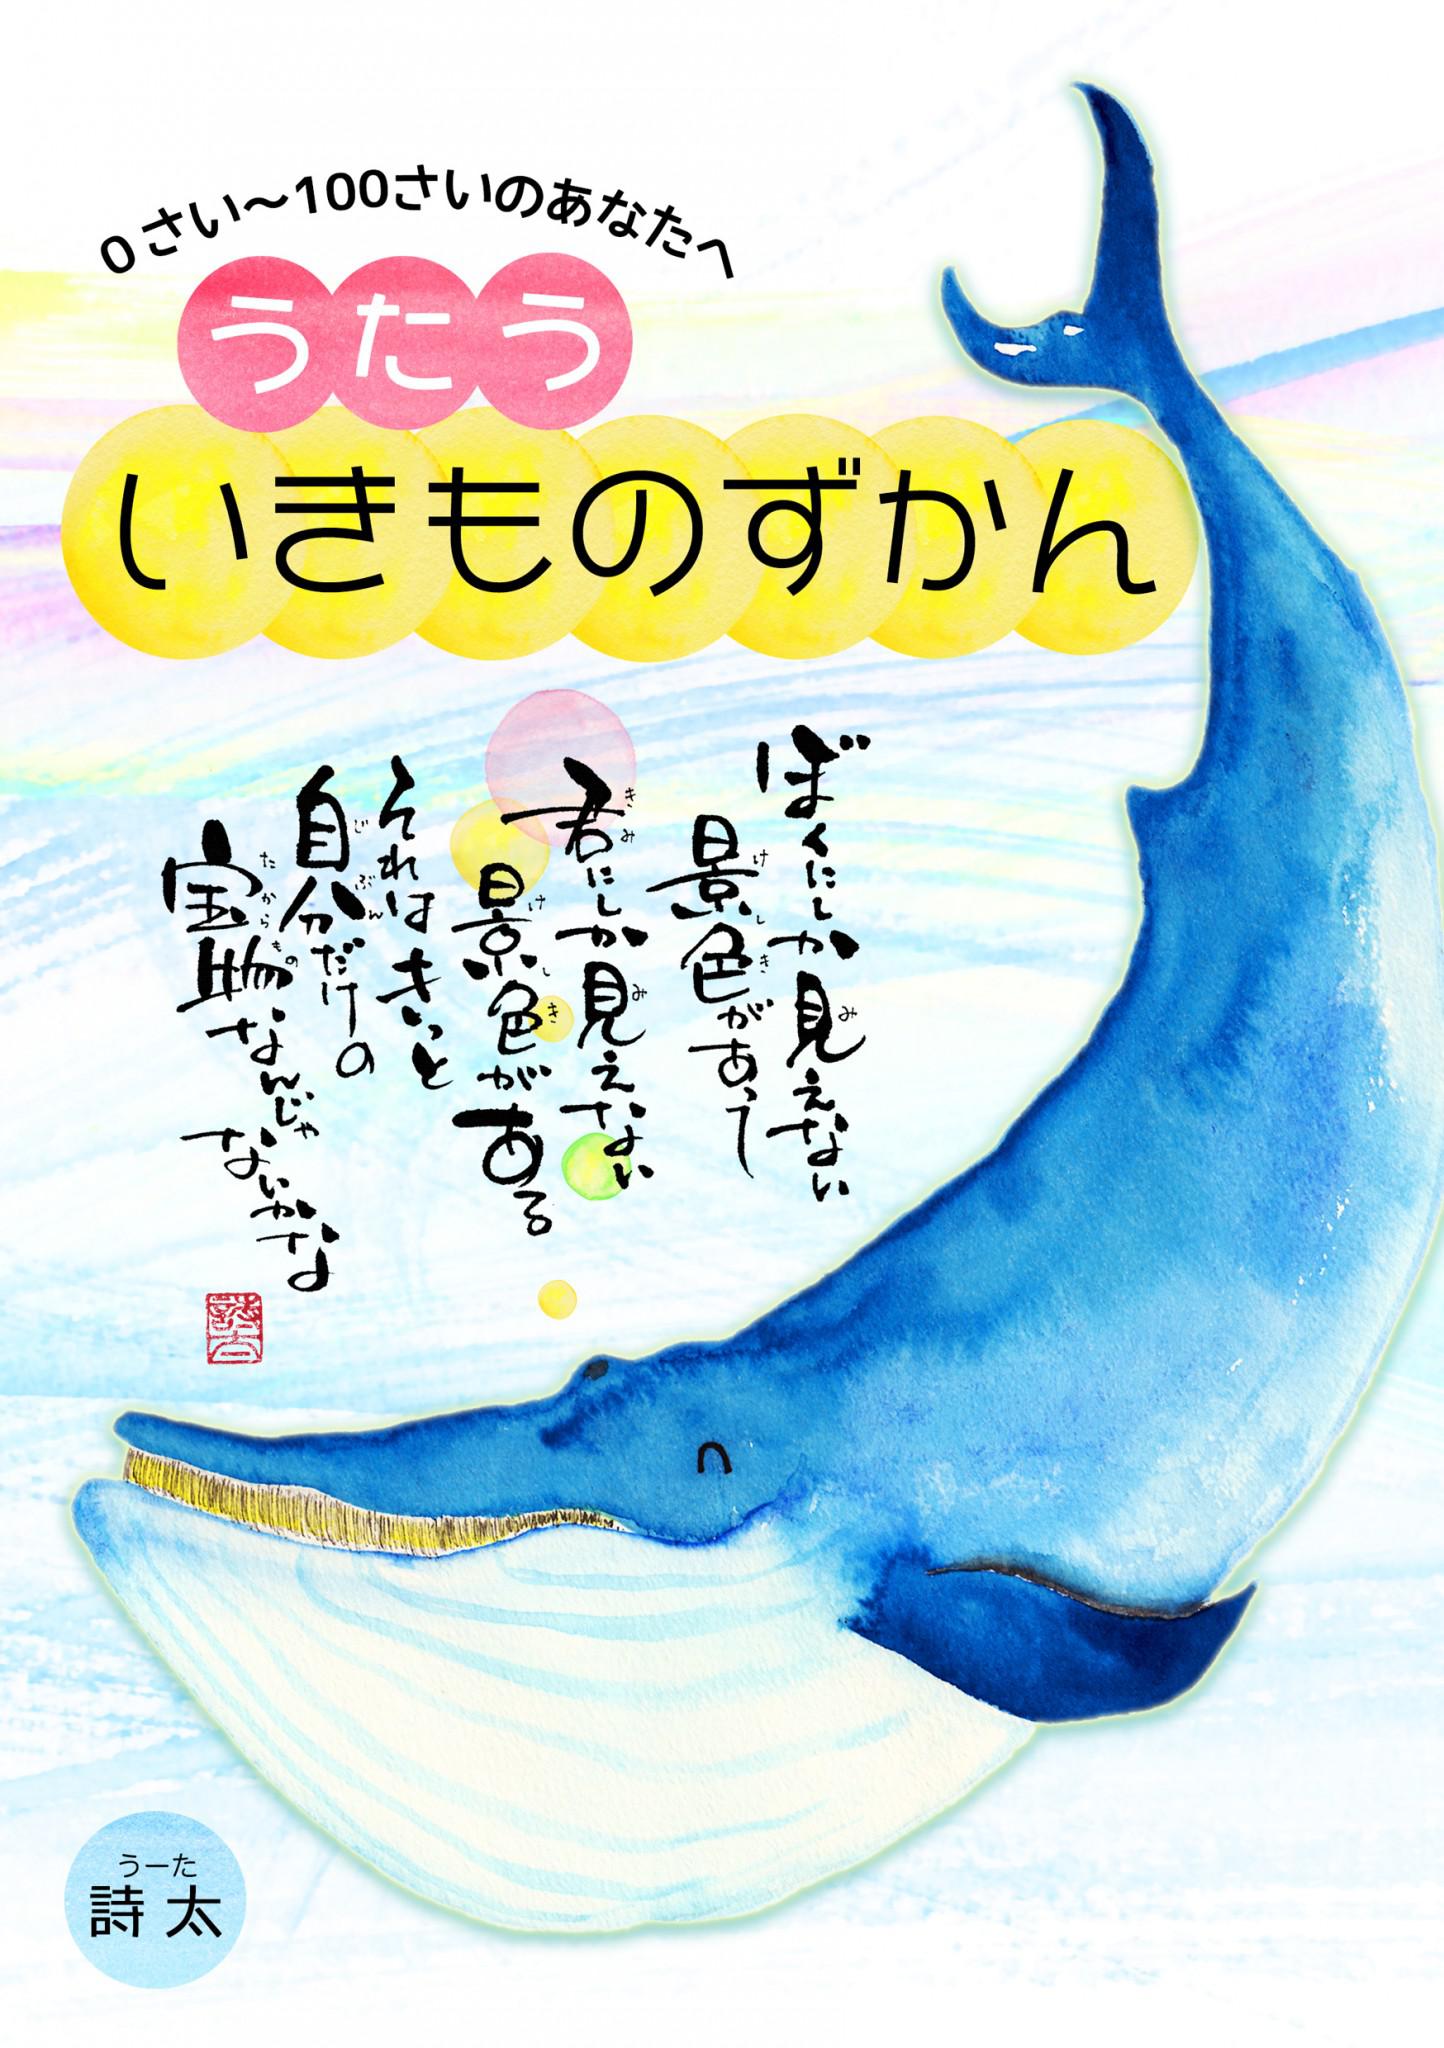 0さい〜100さいのあなたへ
うたう
いきものずかん
ぼくにしか見えない
景色があって
君にしか見えない
景色がある
それはきっと
自分だけの
宝物なんじゃ
ないかな
詩太
うーた
詩太